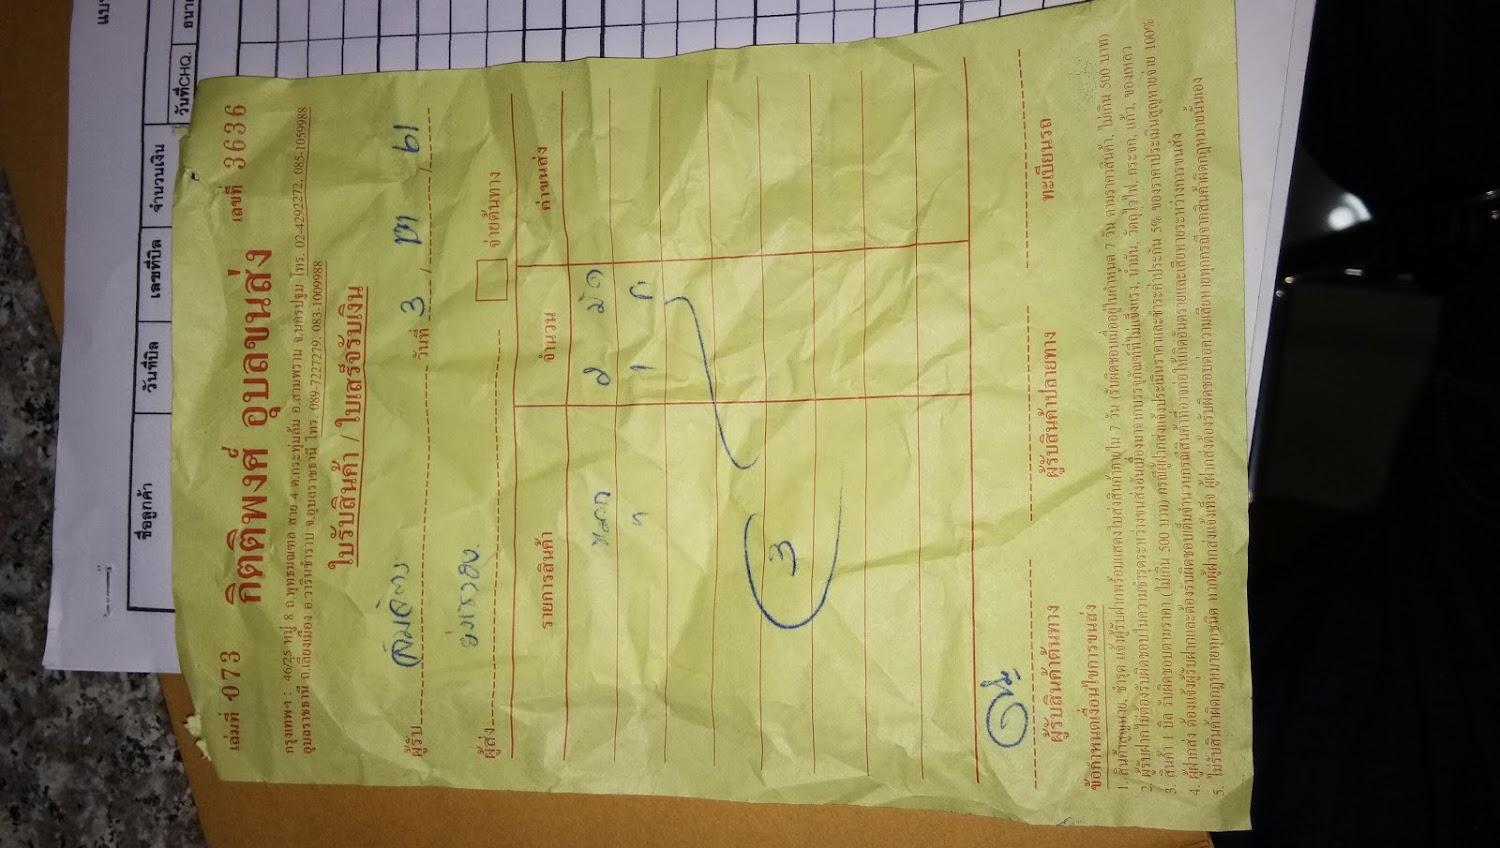 เล่มที่ 073 กิตติพงศ์ อุบลขนส่ง เลขที่ 3636
กรุงเทพฯ : 46/25 หมู่ 8 ถ.พุทธมณฑล สาย 4 ต.กระทุ่มล้ม อ.สามพราน จ.นครปฐม โทร. 02-4292272, 085-1059988
อุบลราชธานี ถ.เลี่ยงเมือง อ.วารินชำราบ จ.อุบลราชธานี โทร. 089-7227279, 083-1009988
ใบรับสินค้า / ใบเสร็จรับเงิน
ผู้รับ วันที่ 3 / / 61
ผู้ส่ง จ่ายต้นทาง
รายการสินค้า จำนวน ค่าขนส่ง
2 มัด
1 ก
3
ผู้รับสินค้าต้นทาง ผู้รับสินค้าปลายทาง ทะเบียนรถ
ข้อกำหนดเงื่อนไขการขนส่ง
1. สินค้าสูญหาย, ชำรุด แจ้งผู้รับฝากพร้อมแสดงใบส่งสินค้าภายใน 7 วัน (รับผิดชอบเมื่ออยู่ในกำหนด 7 วัน ตามราคาสินค้า, ไม่เกิน 500 บาท)
2. ผู้รับฝากไม่ต้องรับผิดชอบในความชำรุดระหว่างขนส่งอันเนื่องมาจากบรรจุภัณฑ์ที่ไม่แข็งแรง, น้ำมัน, วัตถุไวไฟ, กระจก, แก้ว, ของเหลว
3. สินค้า 1 บิล รับผิดชอบตามราคา (ไม่เกิน 500 บาท) กรณีผู้ฝากส่งแจ้งประเมินราคาและชำระค่าประกัน 5% ของราคาประเมินสูญหายจ่าย 100%
4. ผู้ฝากส่ง ต้องแจ้งผู้รับฝากและต้องรับผิดชอบเต็มจำนวนกรณีสินค้าที่อาจก่อให้เกิดอันตรายและเสียหายระหว่างการขนส่ง
5. ไม่รับสินค้าผิดกฎหมายทุกชนิด หากผู้ฝากส่งแจ้งเท็จ ผู้ฝากส่งต้องรับผิดชอบต่อความเสียหายทุกกรณีจากสินค้าผิดกฎหมายนั้นเอง
ชื่อลูกค้า วันที่บิล เลขที่บิล จำนวนเงิน วันที่CHQ.